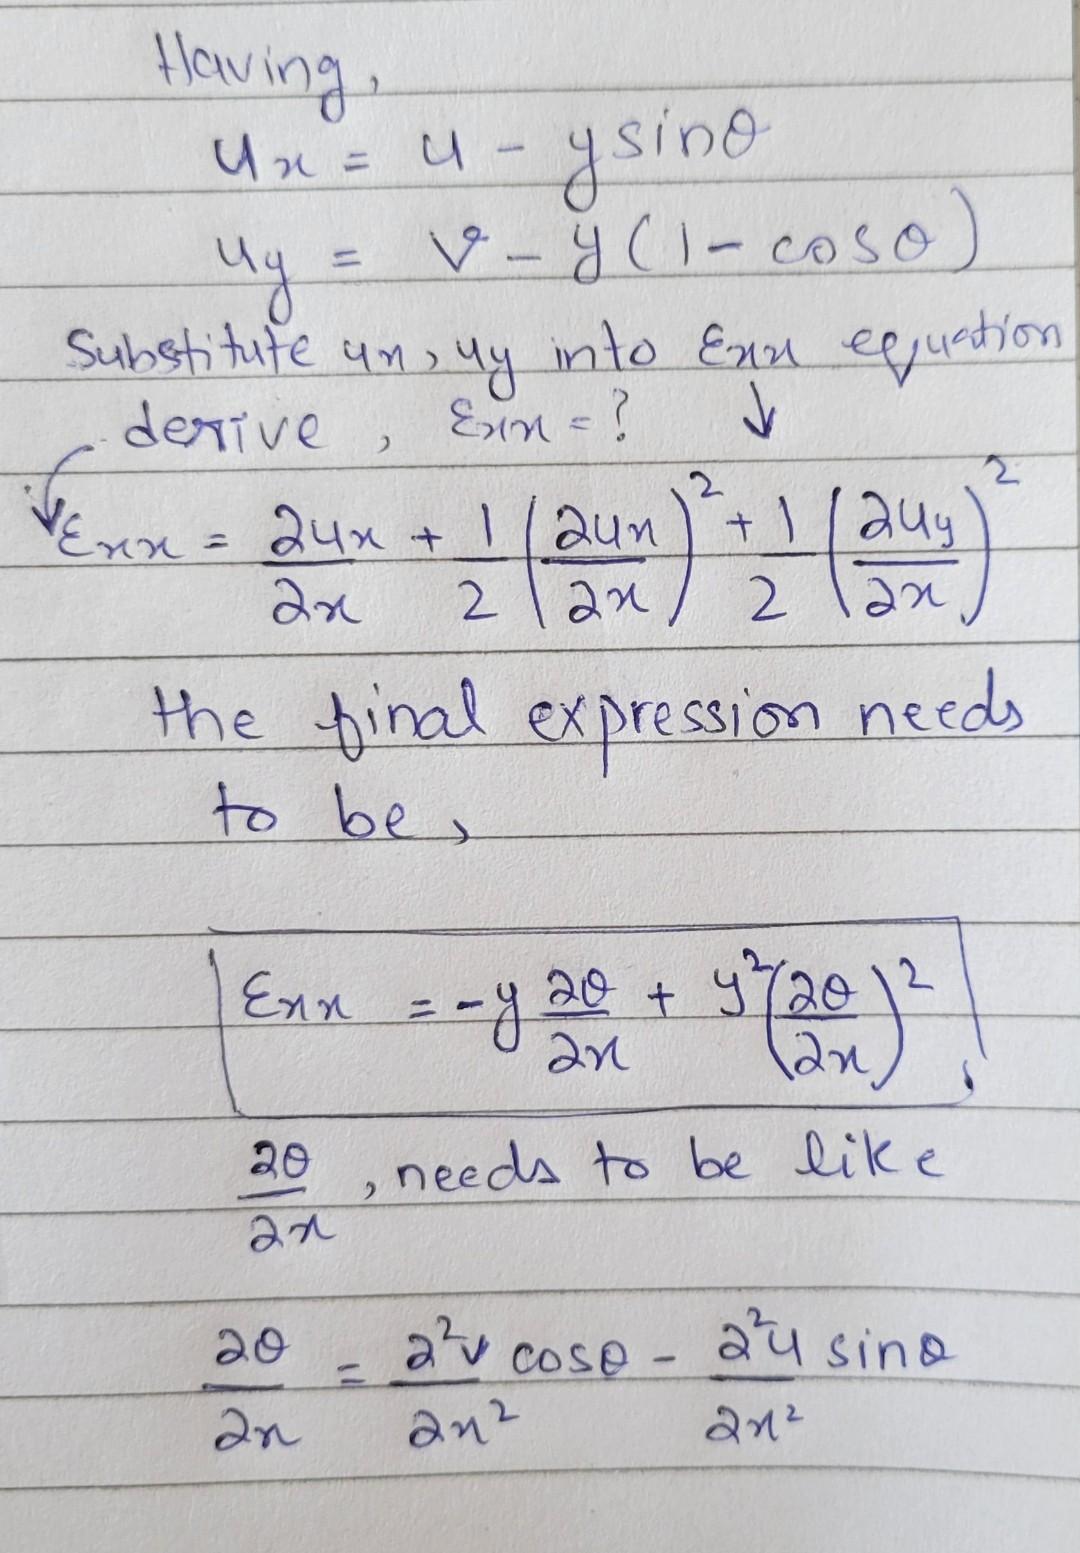 Having,
ux = u - y sinθ
uy = v - y (1 - cosθ)
Substitute ux, uy into Exx equation
derive, Exx = ? ↓
Exx = ∂ux/∂x + 1/2 (∂ux/∂x)² + 1/2 (∂uy/∂x)²
the final expression needs
to be,
Exx = -y ∂θ/∂x + y² (∂θ/∂x)²,
∂θ/∂x, needs to be like
∂θ/∂x = ∂²v/∂x² cosθ - ∂²u/∂x² sinθ